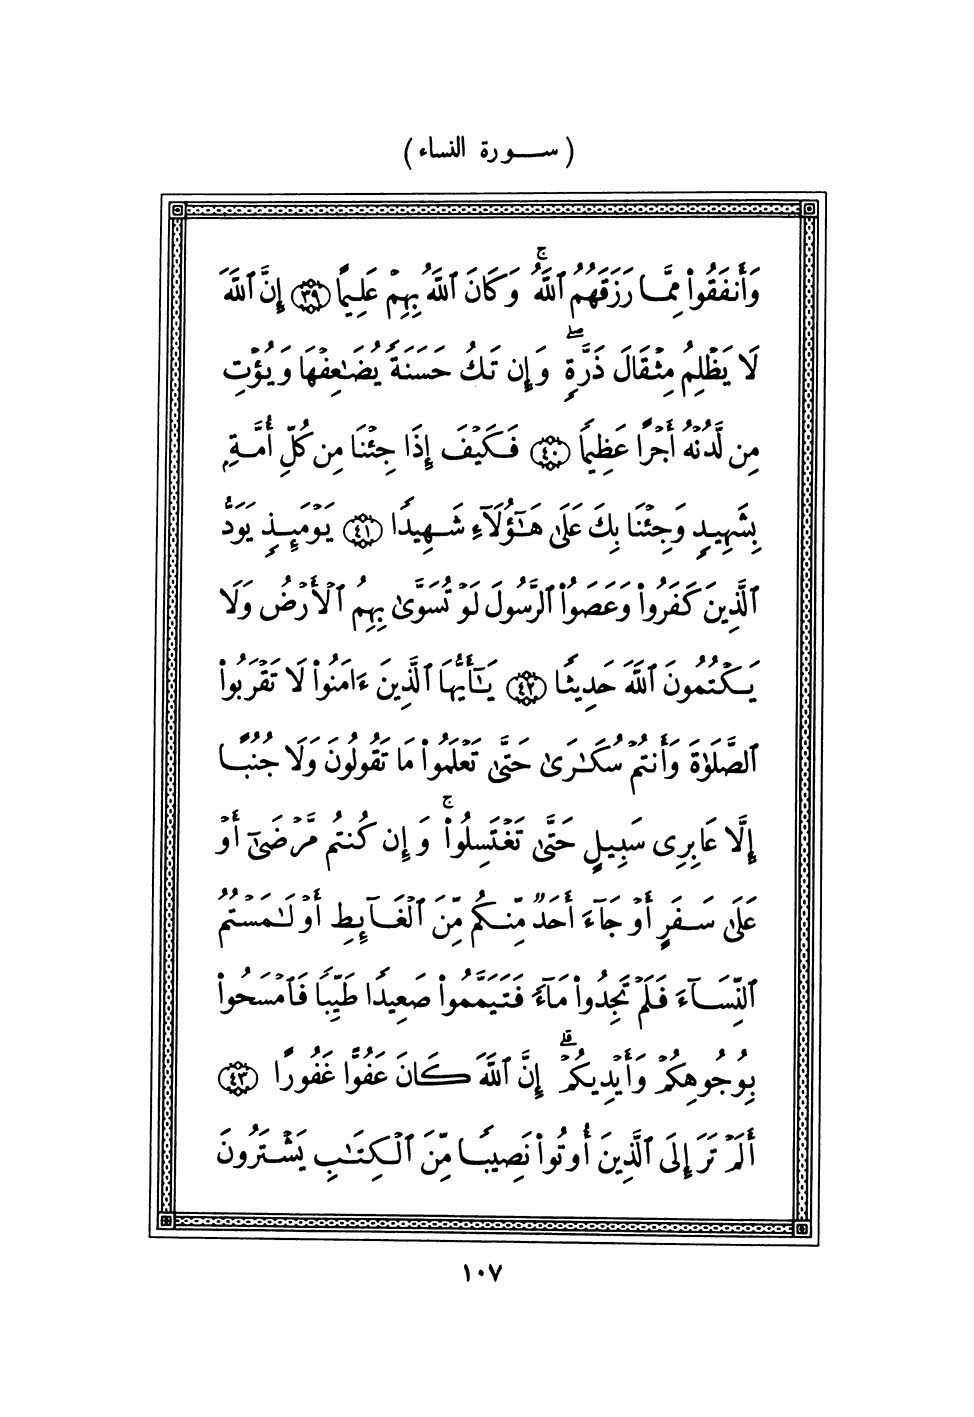 (سـورة النساء)
وَأَنفَقُوا۟ مِمَّا رَزَقَهُمُ ٱللَّهُ ۚ وَكَانَ ٱللَّهُ بِهِمْ عَلِيمًا ٣٩ إِنَّ ٱللَّهَ
لَا يَظْلِمُ مِثْقَالَ ذَرَّةٍ ۖ وَإِن تَكُ حَسَنَةً يُضَٰعِفْهَا وَيُؤْتِ
مِن لَّدُنْهُ أَجْرًا عَظِيمًا ٤٠ فَكَيْفَ إِذَا جِئْنَا مِن كُلِّ أُمَّةٍۭ
بِشَهِيدٍ وَجِئْنَا بِكَ عَلَىٰ هَٰٓؤُلَآءِ شَهِيدًا ٤١ يَوْمَئِذٍ يَوَدُّ
ٱلَّذِينَ كَفَرُوا۟ وَعَصَوُا۟ ٱلرَّسُولَ لَوْ تُسَوَّىٰ بِهِمُ ٱلْأَرْضُ وَلَا
يَكْتُمُونَ ٱللَّهَ حَدِيثًا ٤٢ يَٰٓأَيُّهَا ٱلَّذِينَ ءَامَنُوا۟ لَا تَقْرَبُوا۟
ٱلصَّلَوٰةَ وَأَنتُمْ سُكَٰرَىٰ حَتَّىٰ تَعْلَمُوا۟ مَا تَقُولُونَ وَلَا جُنُبًا
إِلَّا عَابِرِى سَبِيلٍ حَتَّىٰ تَغْتَسِلُوا۟ ۚ وَإِن كُنتُم مَّرْضَىٰٓ أَوْ
عَلَىٰ سَفَرٍ أَوْ جَآءَ أَحَدٌ مِّنكُم مِّنَ ٱلْغَآئِطِ أَوْ لَٰمَسْتُمُ
ٱلنِّسَآءَ فَلَمْ تَجِدُوا۟ مَآءً فَتَيَمَّمُوا۟ صَعِيدًا طَيِّبًا فَٱمْسَحُوا۟
بِوُجُوهِكُمْ وَأَيْدِيكُمْ ۗ إِنَّ ٱللَّهَ كَانَ عَفُوًّا غَفُورًا ٤٣
أَلَمْ تَرَ إِلَى ٱلَّذِينَ أُوتُوا۟ نَصِيبًا مِّنَ ٱلْكِتَٰبِ يَشْتَرُونَ
١٠٧